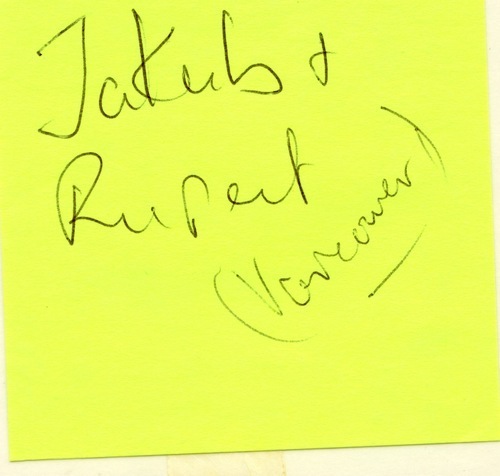 Jakub +
Rupert
(Vancouver)